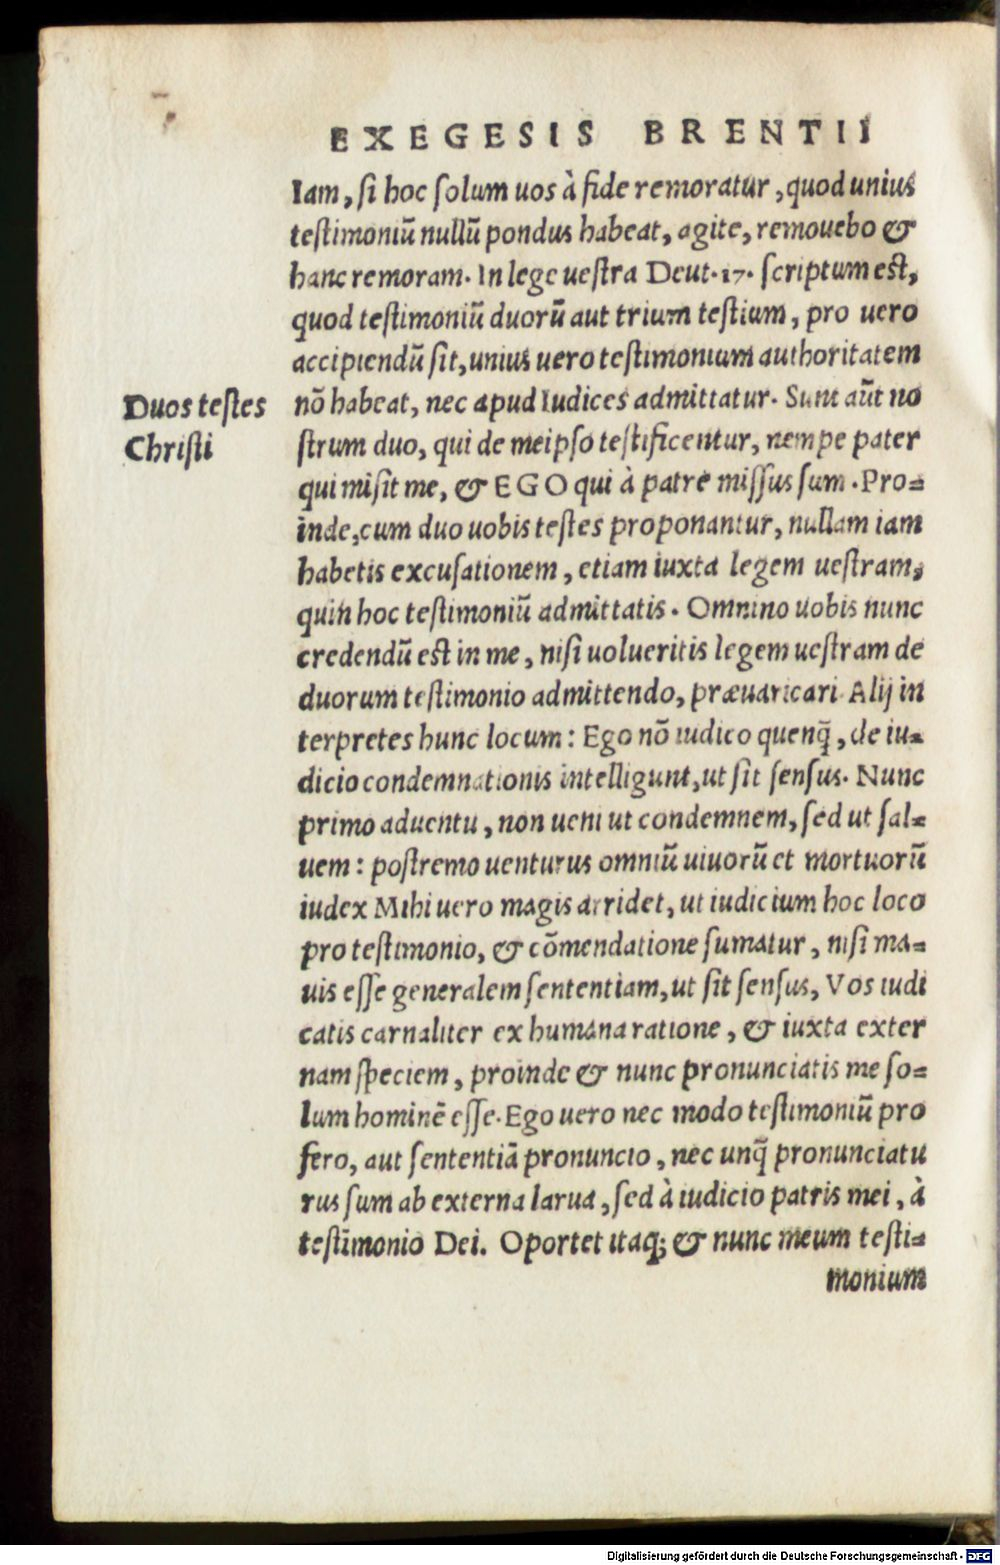 EXEGESIS BRENTII
Iam, si hoc solum uos à fide remoratur, quod unius
testimoniũ nullũ pondus habeat, agite, remouebo &
hanc remoram. In lege uestra Deut. 17. scriptum est,
quod testimoniũ duorũ aut trium testium, pro uero
accipiendũ sit, unius uero testimonium authoritatem
Duos testes
Christi
nõ habeat, nec apud Iudices admittatur. Sunt aũt no
strum duo, qui de meipso testificentur, nempe pater
qui misit me, & EGO qui à patre missus sum. Pro-
inde, cum duo uobis testes proponantur, nullam iam
habetis excusationem, etiam iuxta legem uestram,
quin hoc testimoniũ admittatis. Omnino uobis nunc
credendũ est in me, nisi uolueritis legem uestram de
duorum testimonio admittendo, præuaricari. Alij in
terpretes hunc locum: Ego nõ iudico quenq̃, de iu-
dicio condemnationis intelligunt, ut sit sensus. Nunc
primo aduentu, non ueni ut condemnem, sed ut sal-
uem: postremo uenturus omniũ uiuorũ et mortuorũ
iudex Mihi uero magis arridet, ut iudicium hoc loco
pro testimonio, & cõmendatione sumatur, nisi ma-
uis esse generalem sententiam, ut sit sensus, Vos iudi
catis carnaliter ex humana ratione, & iuxta exter
nam speciem, proinde & nunc pronunciatis me so-
lum hominẽ esse. Ego uero nec modo testimoniũ pro
fero, aut sententiã pronuncio, nec unq̃ pronunciatu
rus sum ab externa larua, sed à iudicio patris mei, à
testimonio Dei. Oportet itaq; & nunc meum testi-
monium
Digitalisierung gefördert durch die Deutsche Forschungsgemeinschaft - DFG